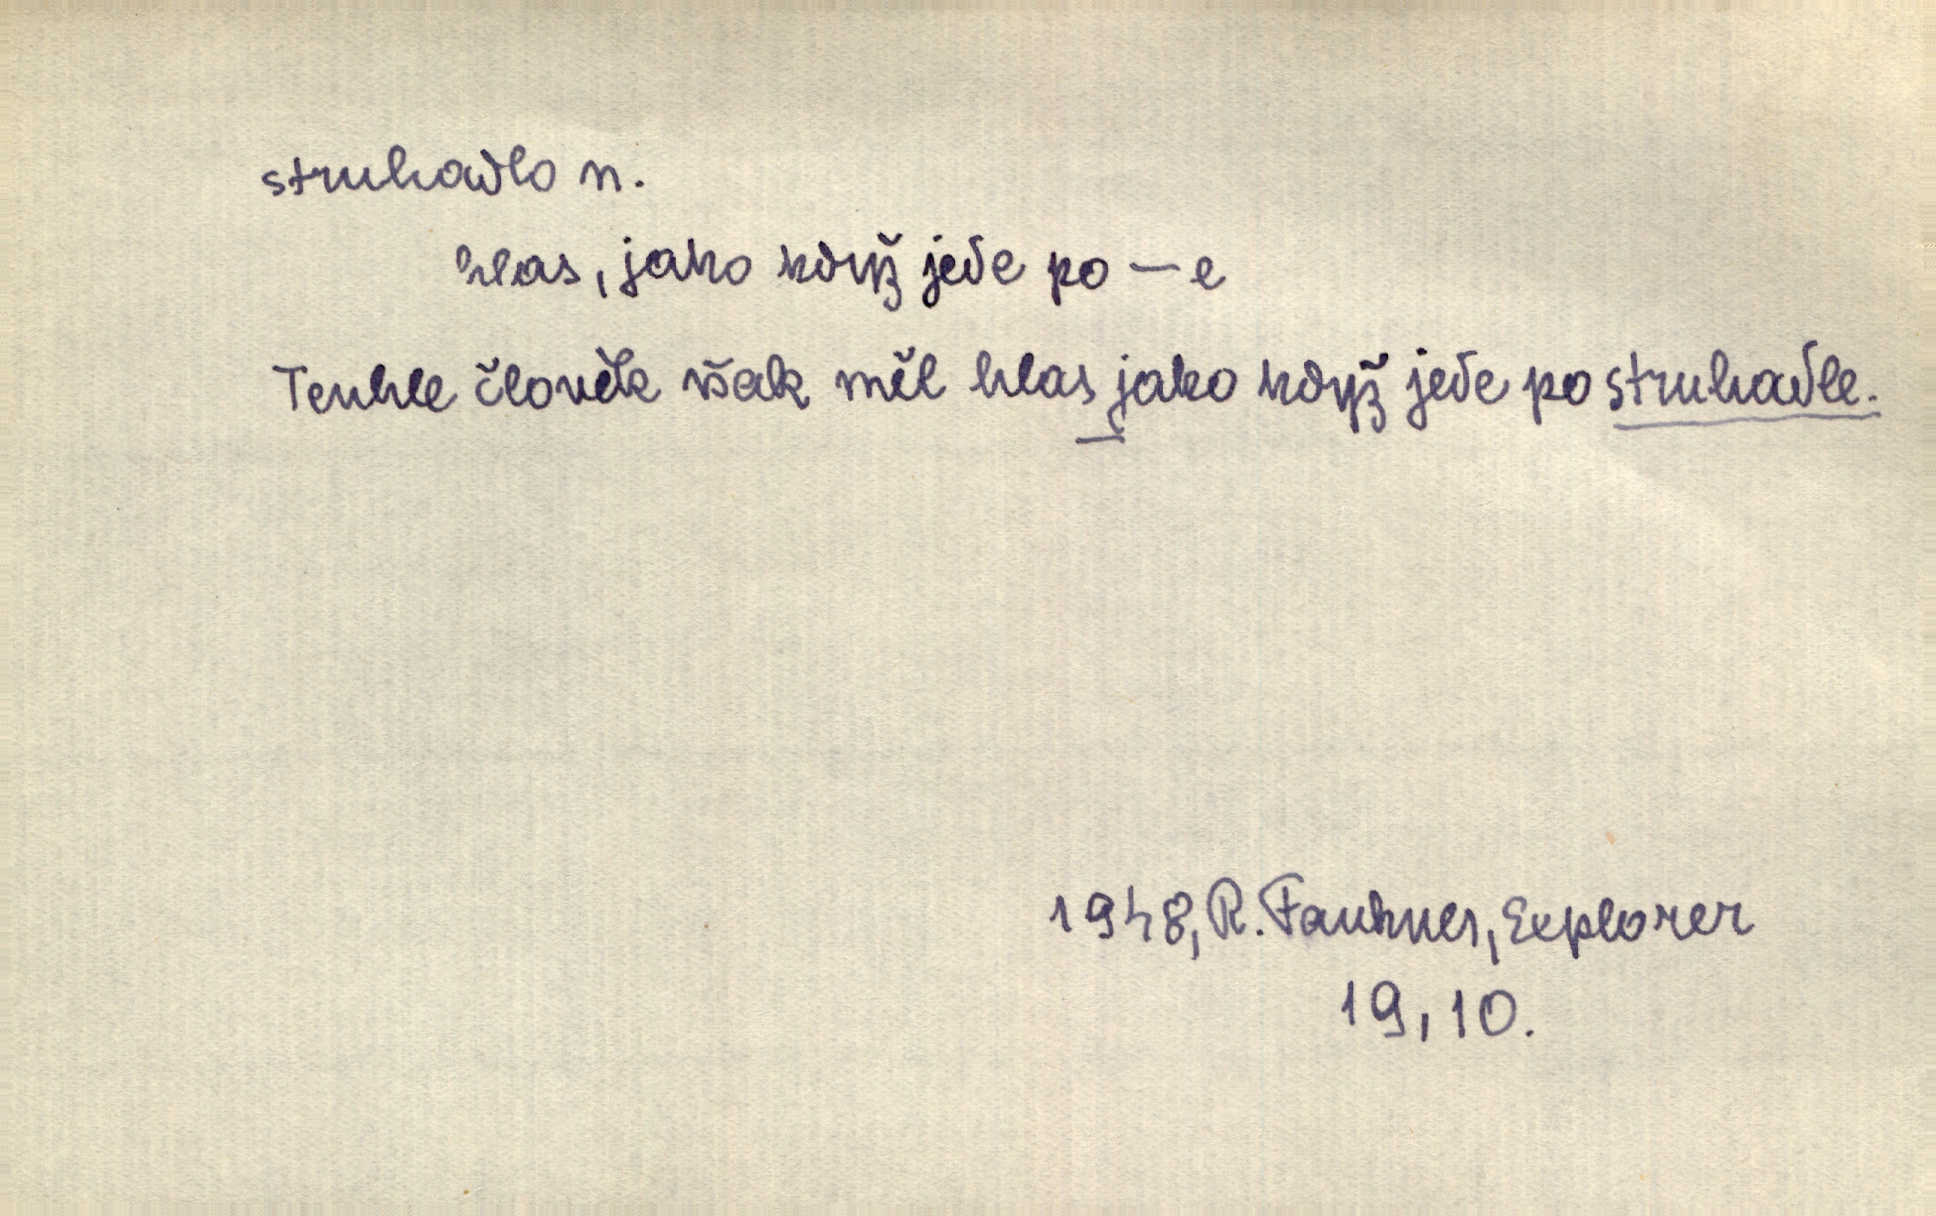 struhadlo n.
hlas, jako když jede po — e
Tenhle člověk však měl hlas jako když jede po struhadle.
1948, R. Faukner, Explorer
19, 10.